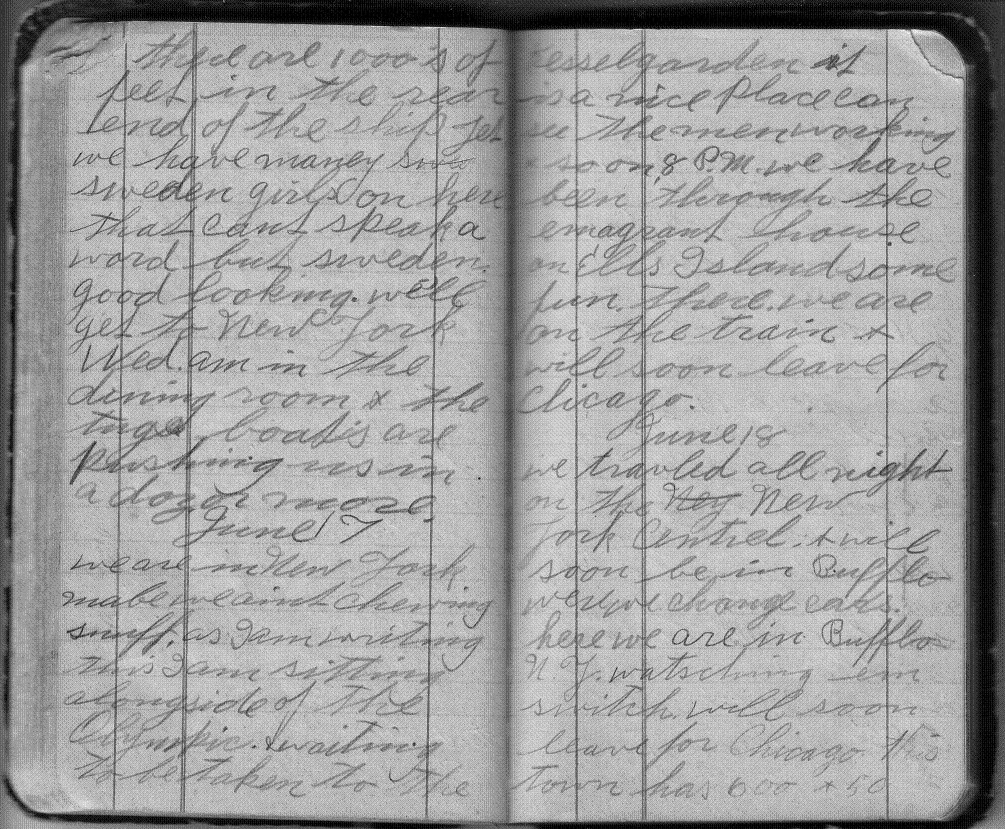 there are 1000's of
feet in the rear
end of the ship yet
we have maney swo
sweden girls on here
that cant speak a
word but sweden.
good looking. we'll
get to New York
Wed. am in the
dining room & the
tuge boat's are
pushing us in
a dozon more.
June 17
we are in New York
mabe we aint chewing
snuff. as I am writing
this I am sitting
alongside of the
Olympic. & waiting
to be taken to the
esselgarden it
is a nice place can
see the men working
soon, 8 P.M. we have
been through the
emagrant house
on Ells Island some
fun. there. we are
on the train &
will soon leave for
Chicago.
June 18
we travled all night
on the Ney New
York Centrel. & will
soon be in Bufflo
were we change cars.
here we are in Bufflo
N. Y. watsching em
switch. will soon
leave for Chicago this
town has 600 + 50